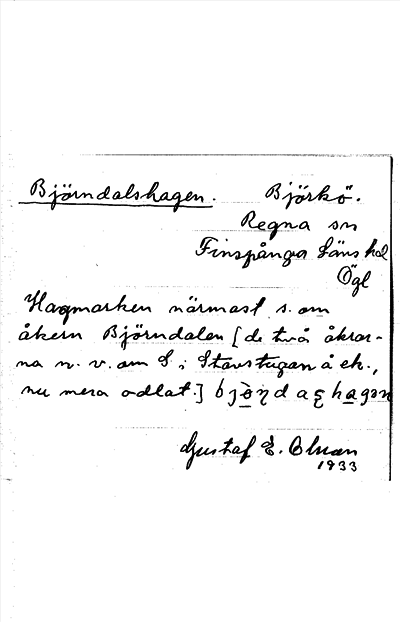 Björndalshagen. Björkö.
Regna sn
Finspånga Läns hd
Ögl
Hagmarken närmast s. om
åkern Björndalen [de två åkrar-
na n. v. om S i Stavstugan å ek.,
nu mera odlat.]
Gustaf E.
1933